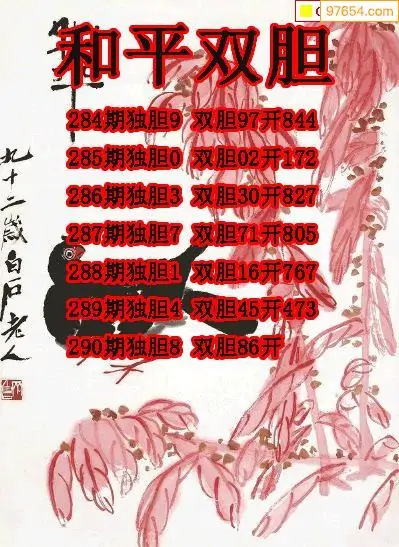 97654.com
和平双胆
284期独胆9 双胆97开844
285期独胆0 双胆02开172
286期独胆3 双胆30开827
287期独胆7 双胆71开805
288期独胆1 双胆16开767
289期独胆4 双胆45开473
290期独胆8 双胆86开
九十二岁白石老人